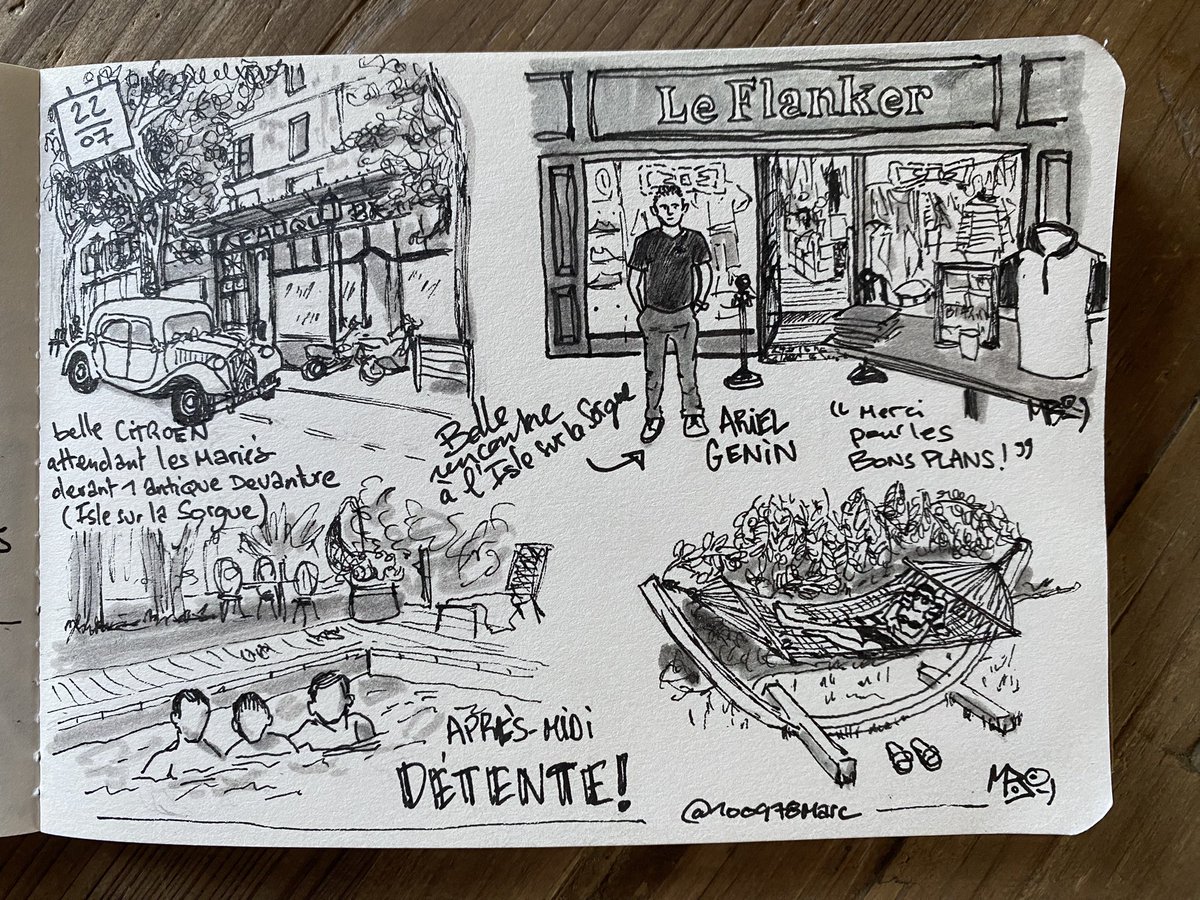 22
07
Le Flanker
belle CITROËN
attendant les Mariés
devant 1 antique Devanture
(Isle sur la Sorgue)
Belle
rencontre
à l'Isle sur la Sorgue
ARIEL
GENIN
“Merci
pour les
BONS PLANS!”
APRÈS-MIDI
DÉTENTE!
@100978Marc